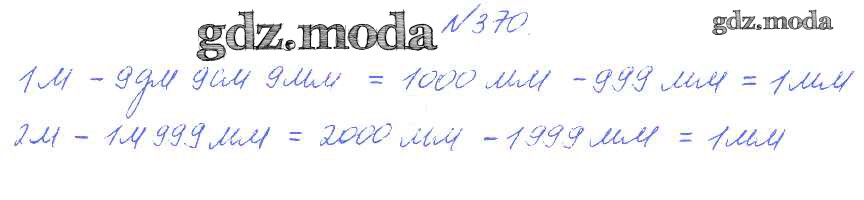 gdz.moda №370. gdz.moda
1м - 9дм 9см 9мм = 1000 мм - 999 мм = 1мм
2м - 1м 999 мм = 2000 мм - 1999 мм = 1мм